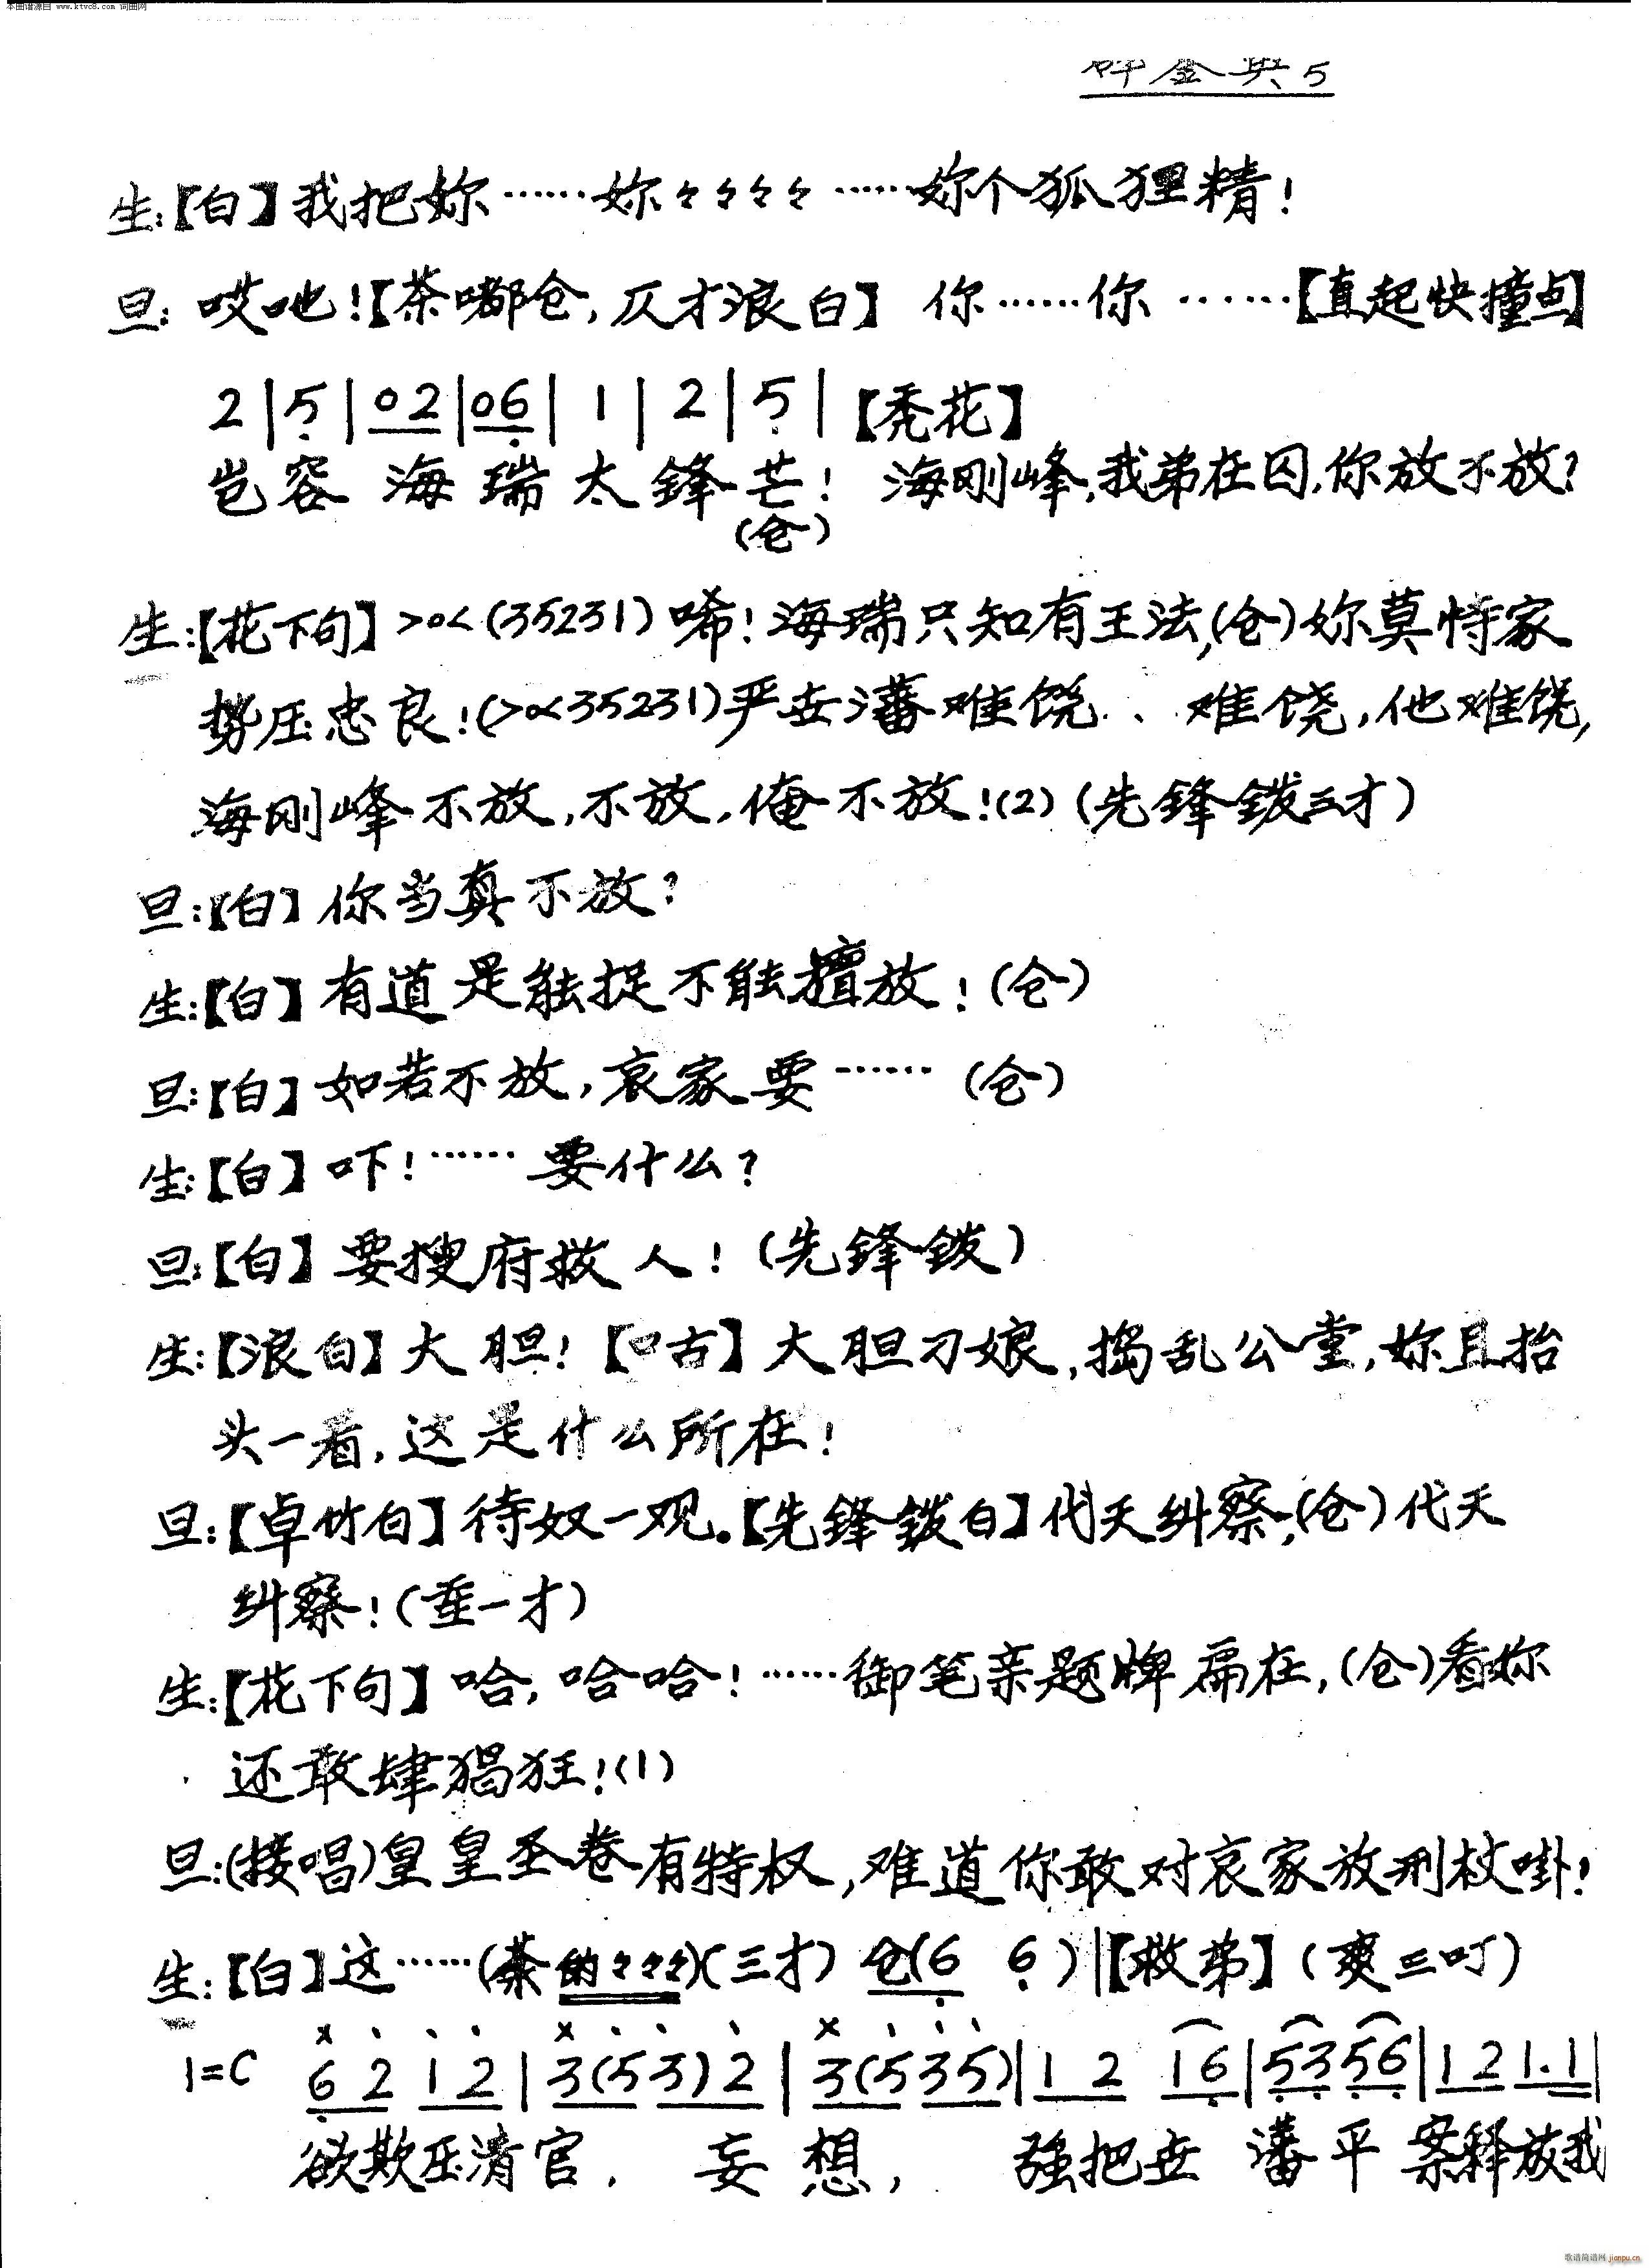 本曲谱源自 www.ktvc8.com 词曲网
碎金典 5
生:【白】我把妳……妳々々々々……妳个狐狸精!
旦: 哎吔!【茶嘟仓,仄才浪白】 你……你……【直起快撞点】
2 | 5 | 0 2 | 0 6 | 1 | 2 | 5 | 【秃花】
岂容 海 瑞 太 鋒 芒! 海刚峰,我弟在囚,你放不放?
(仓)
生:【花下句】>0<(35231)唏!海瑞只知有王法,(仓)妳莫恃家
势压忠良!(>0<35231)严世藩难饶、难饶,他难饶,
海刚峰不放,不放,俺不放!(2)(先鋒鈸三才)
旦:【白】你当真不放?
生:【白】有道是能捉不能擅放!(仓)
旦:【白】如若不放,哀家要……(仓)
生:【白】吓!……要什么?
旦:【白】要搜府救人!(先鋒鈸)
生:【浪白】大胆!【口古】大胆刁娘,捣乱公堂,妳且抬
头一看,这是什么所在!
旦:【卓竹白】待奴一观。【先鋒鈸白】代天纠察,(仓)代天
纠察!(重一才)
生:【花下句】哈,哈哈!……御笔亲题牌扁在,(仓)看妳
还敢肆猖狂!(1)
旦:(接唱)皇皇圣卷有特权,难道你敢对哀家放刑杖啩!
生:【白】这……(茶的々々々)(三才) 仓(6 6)|【救弟】(爽三叮)
1=C 6 2 1 2 | 3(5 3) 2 | 3(5 3 5) | 1 2 1 6 | 5 3 5 6 | 1 2 1. 1 |
欲欺压清官, 妄 想, 强把世 藩 平 案释放我
歌谱简谱网 jianpu.cn